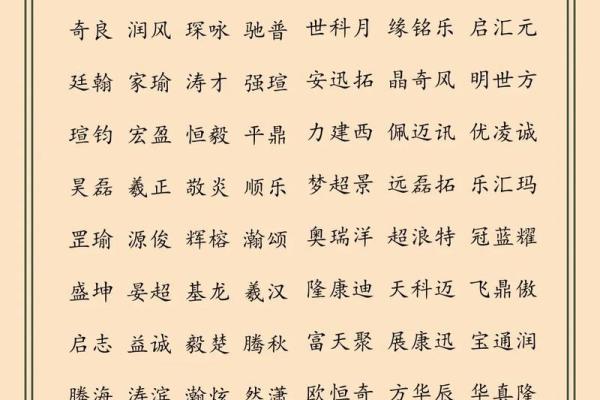 奇良 润风 琛咏 驰普 世科月 缘铭乐 启汇元
廷翰 家瑜 涛才 强瑄 安迅拓 晶奇风 明世方
瑄钧 宏盈 恒毅 平鼎 力建西 佩迈讯 优凌诚
昊磊 羲正 敬炎 顺乐 梦超景 远磊拓 乐汇玛
罡瑜 源俊 辉榕 瀚颂 奥瑞洋 超浪特 冠蓝耀
盛坤 晏超 基龙 羲汉 隆康迪 天科迈 飞鼎傲
启志 益诚 毅楚 腾秋 富天聚 展康迅 宝通润
腾海 涛滨 瀚炫 然潇 欧恒奇 方华辰 华真隆